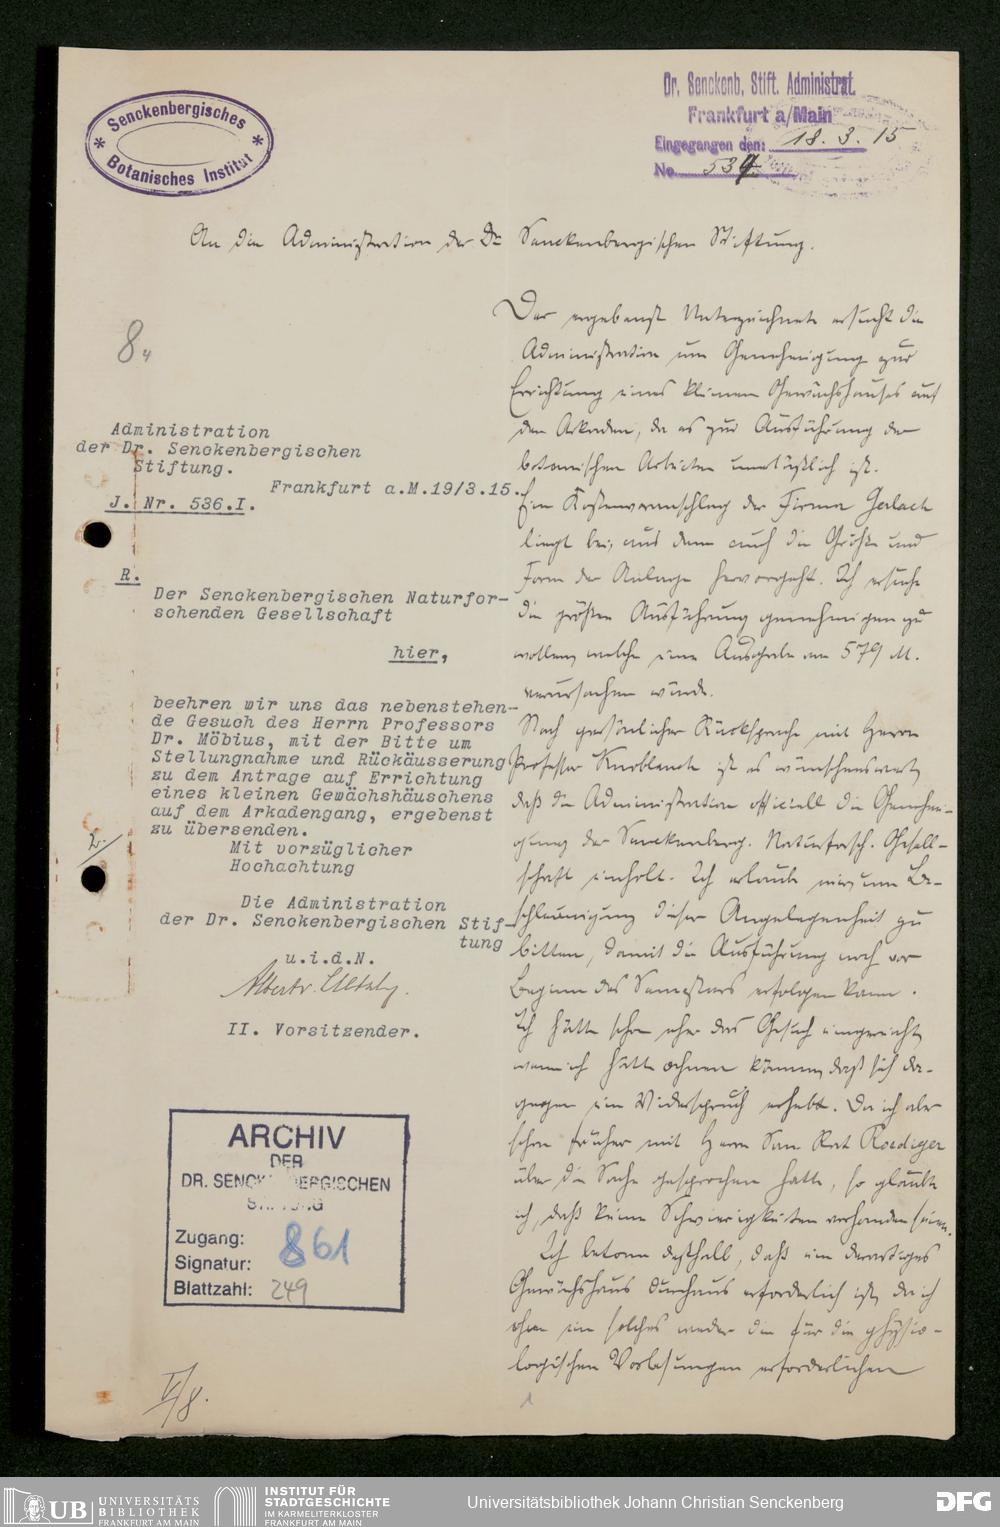 Senckenbergisches
* Botanisches Institut *
Dr. Senckenb. Stift. Administrat.
Frankfurt a/Main
Eingegangen den: 18. 3. 15
No. 534
An die Administration der Dr. Senckenbergischen Stiftung.
8
Administration
der Dr. Senckenbergischen
Stiftung.
Frankfurt a.M.19/3.15.
J. Nr. 536.I.
R.
Der Senckenbergischen Naturfor-
schenden Gesellschaft
hier,
beehren wir uns das nebenstehen-
de Gesuch des Herrn Professors
Dr. Möbius, mit der Bitte um
Stellungnahme und Rückäusserung
zu dem Antrage auf Errichtung
eines kleinen Gewächshäuschens
auf dem Arkadengang, ergebenst
zu übersenden.
Mit vorzüglicher
Hochachtung
Die Administration
der Dr. Senckenbergischen Stif-
tung
u.i.d.N.
II. Vorsitzender.
Der ergebenst Unterzeichnete ersucht die
Administration um Genehmigung zur
Errichtung eines kleinen Gewächshauses auf
den Arkaden, da es zur Ausführung der
botanischen Arbeiten unerläßlich ist.
Ein Kostenvoranschlag der Firma Gerlach
liegt bei, aus dem auch die Größe und
Form der Anlage hervorgeht. Ich ersuche
die größere Ausführung genehmigen zu
wollen, welche eine Ausgabe von 579 M.
verursachen würde.
Nach persönlicher Rücksprache mit Herrn
Professor Knoblauch ist es wünschenswert,
daß die Administration officiell die Genehmi-
gung der Senckenberg. Naturforsch. Gesell-
schaft einholt. Ich erlaube mir, um Be-
schleunigung dieser Angelegenheit zu
bitten, damit die Ausführung noch vor
Beginn des Semesters erfolgen kann.
Ich hätte schon eher das Gesuch eingereicht,
wenn ich hätte ahnen können, daß sich da-
gegen ein Widerspruch erhebt. Da ich aber
schon früher mit Herrn San Rat Roediger
über die Sache gesprochen hatte, so glaubte
ich, daß keine Schwierigkeiten vorhanden seien.
Ich betone deßhalb, daß ein derartiges
Gewächshaus durchaus erforderlich ist, da ich
ohne ein solches weder die für die physio-
logischen Vorlesungen erforderlichen
2.
ARCHIV
DER
DR. SENCKENBERGISCHEN
STIFTUNG
Zugang:
Signatur: 861
Blattzahl: 249
V/8.
1
UB UNIVERSITÄTS
BIBLIOTHEK
FRANKFURT AM MAIN
INSTITUT FÜR
STADTGESCHICHTE
IM KARMELITERKLOSTER
FRANKFURT AM MAIN
Universitätsbibliothek Johann Christian Senckenberg
DFG